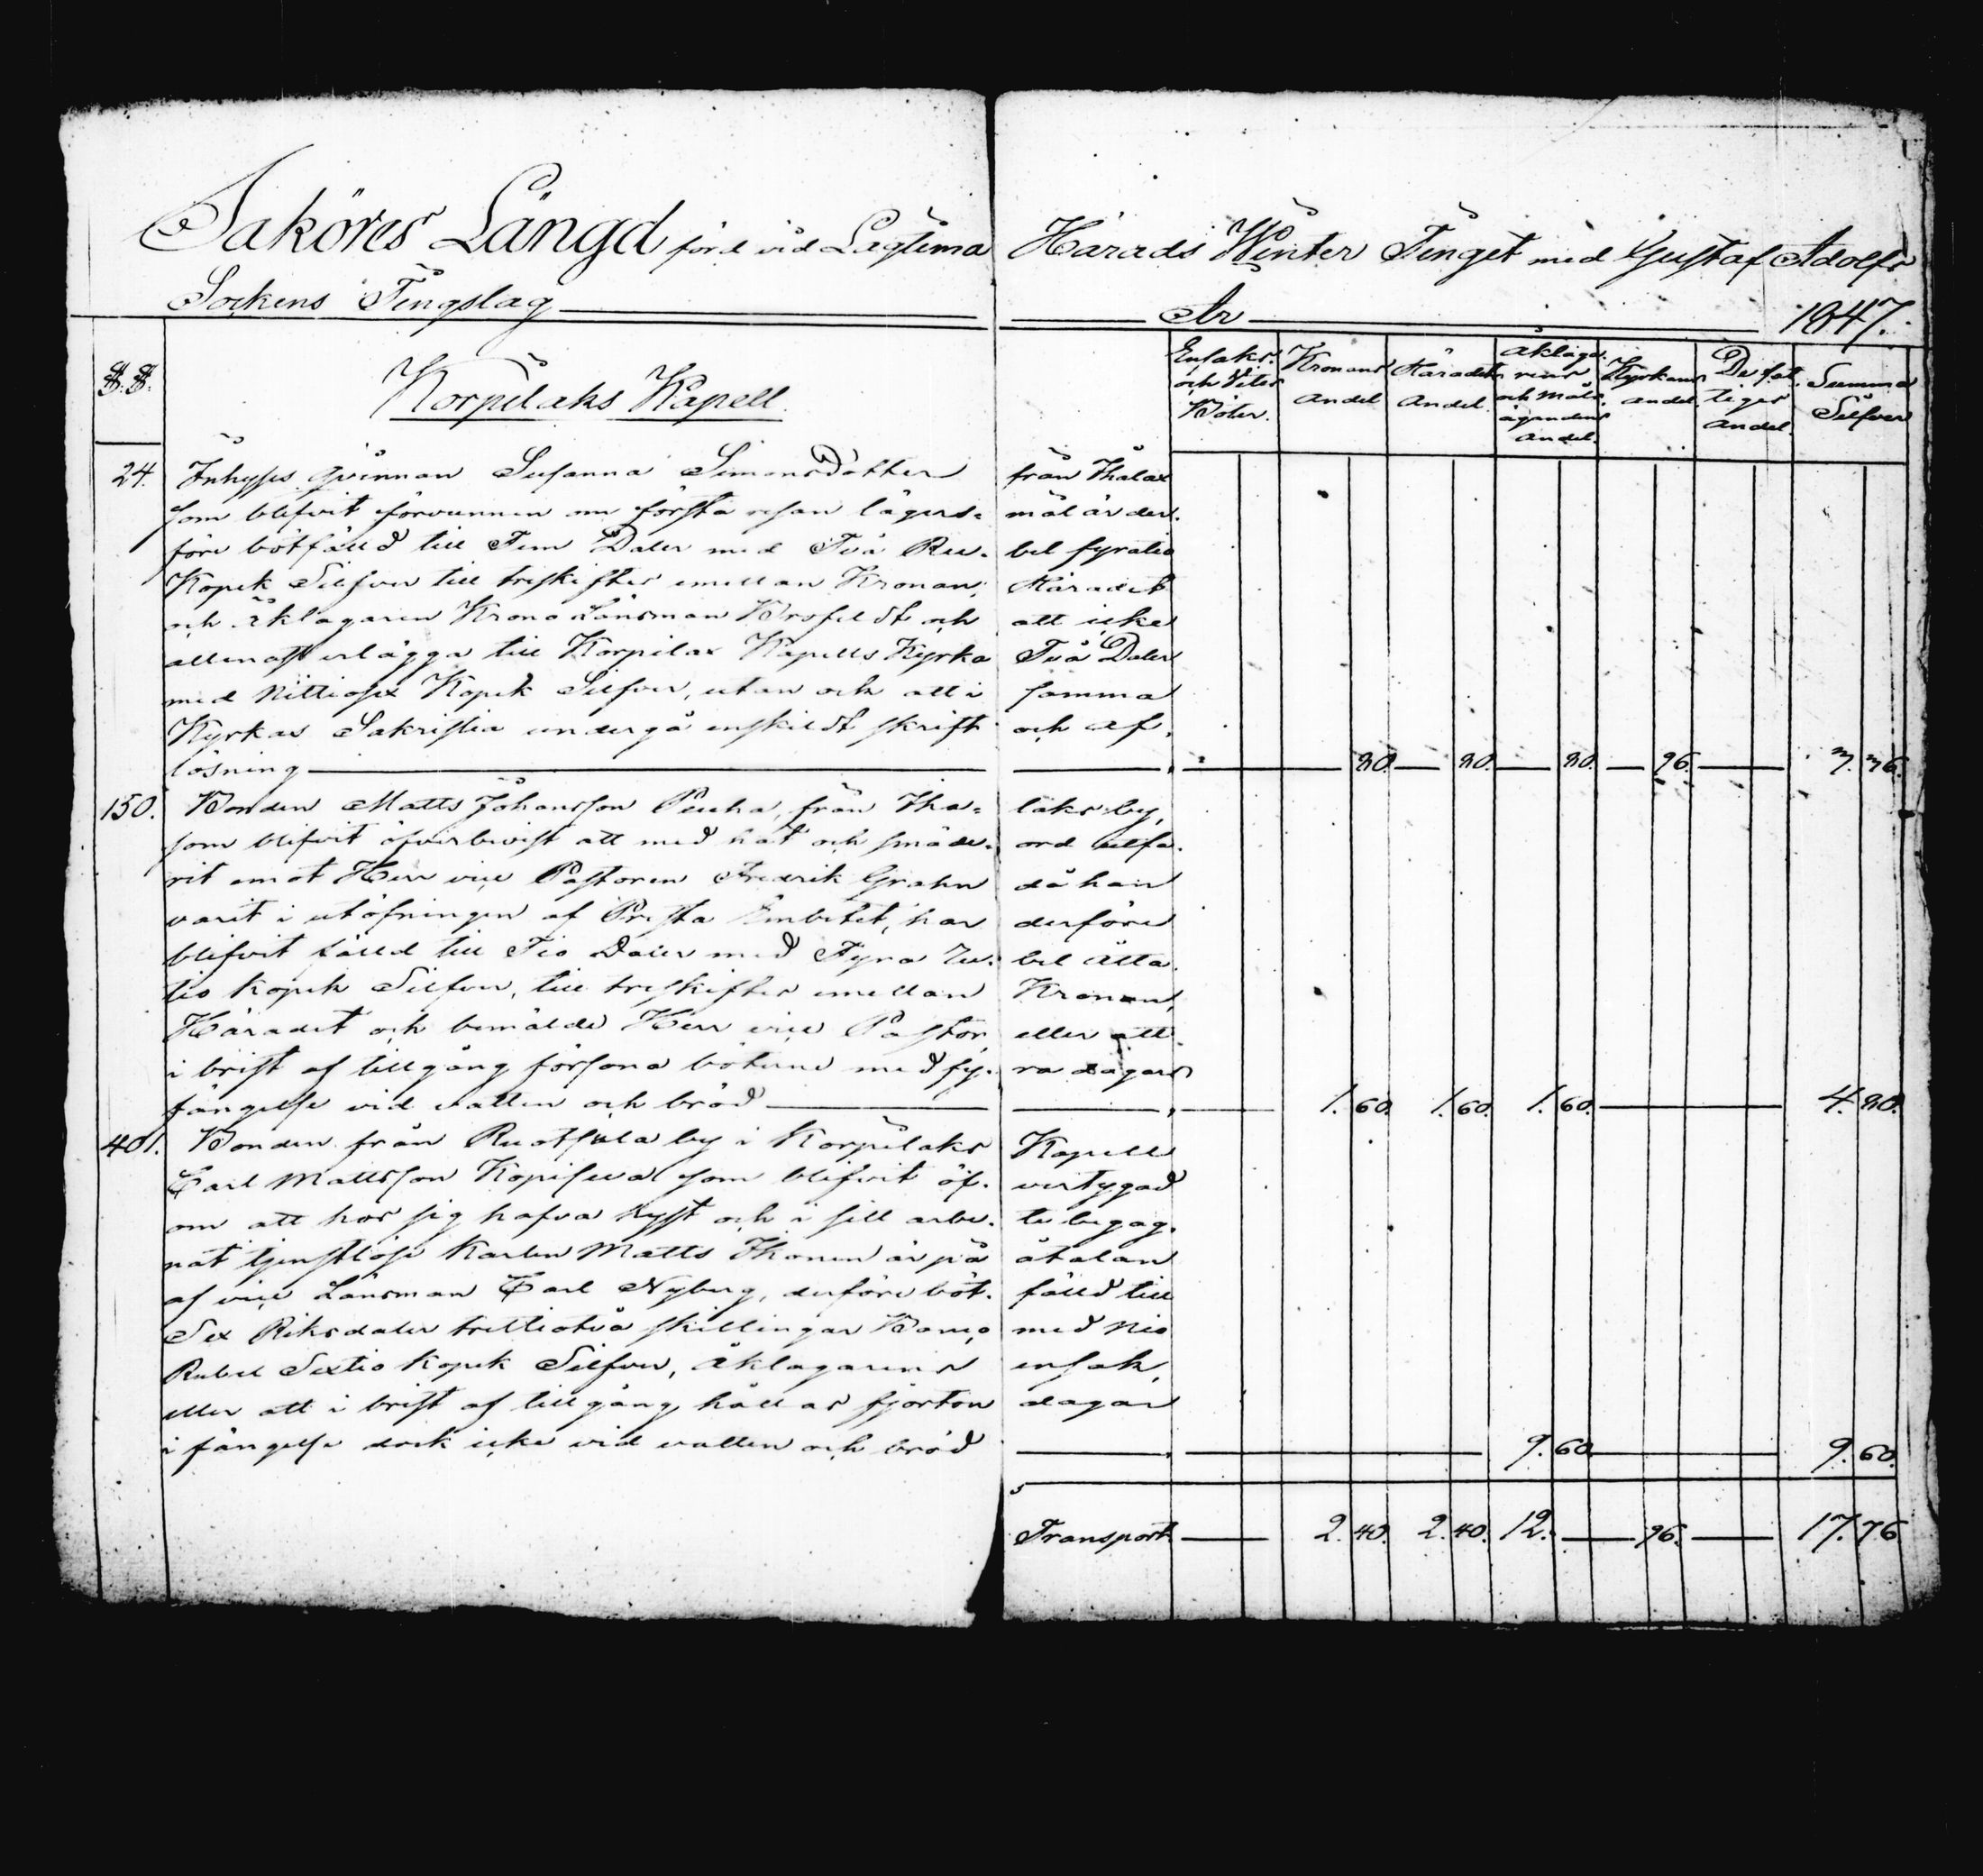 Saköres Längd förd vid Lagtima Härads Winter Tinget med Gustaf Adolfs
Sockens Tingslag År 1847.
§.§. Korpilaks Kapell Ensaks och Vites Böter. Kronans Andel Häradets Andel. Åklagarens och Målsägandens Andel. Kyrkans andel. De fattiges andel. Summa Silfver
24. Inhyses qvinnan Susanna Simonsdotter från Ihalax
som blifvit förvunnen om första resan lägers- mål är der-
före botfälld till Fem Daler med Två Ru- bel fyratio
Kopek Silfver till treskiftes emellan Kronan, Häradet
och Åklagaren Krono Länsman Brofeldt och att icke
allenast erlägga till Korpilax Kapells Kyrka Två Daler
med Nittiosex Kopek Silfver, utan och att i samma
Kyrkas Sakristia undergå enskildt skrift och af-
lösning 80. 80. 80. 96. 3.36.
150. Bonden Matts Johansson Peuha, från Iha- laks by,
som blifvit öfverbevist att med hot och smäde- ord utfa-
rit emot Herr vice Pastoren Fredrik Grahn då han
varit i utöfningen af Presta Embetet, har derföre
blifvit fälld till Tio Daler med Fyra Ru- bel Åtta-
tio Kopek Silfver, till treskiftes emellan Kronan,
Häradet och bemälde Herr vice Pastor, eller att
i brist af tillgång försona böterne med fy- ra dagars
fängelse vid vatten och bröd 1.60. 1.60. 1.60. 4.80.
401. Bonden från Ruotsula by i Korpilaks Kapell
Carl Mattsson Kopiseva som blifvit öf- vertygad
om att hos sig hafva hyst och i sitt arbe- te begag-
nat tjenstlöse Karlen Matts Ikonen är på åtalan
af vice Länsman Carl Nyberg, derföre böt- fälld till
Sex Riksdaler trettiotvå skillingar Banco med Nio
Rubel Sextio Kopek Silfver, Åklagarens ensak,
eller att i brist af tillgång hållas fjorton dagar
i fängelse dock icke vid vatten och bröd 9.60. 9.60.
Transport 2.40. 2.40. 12. 96. 17.76